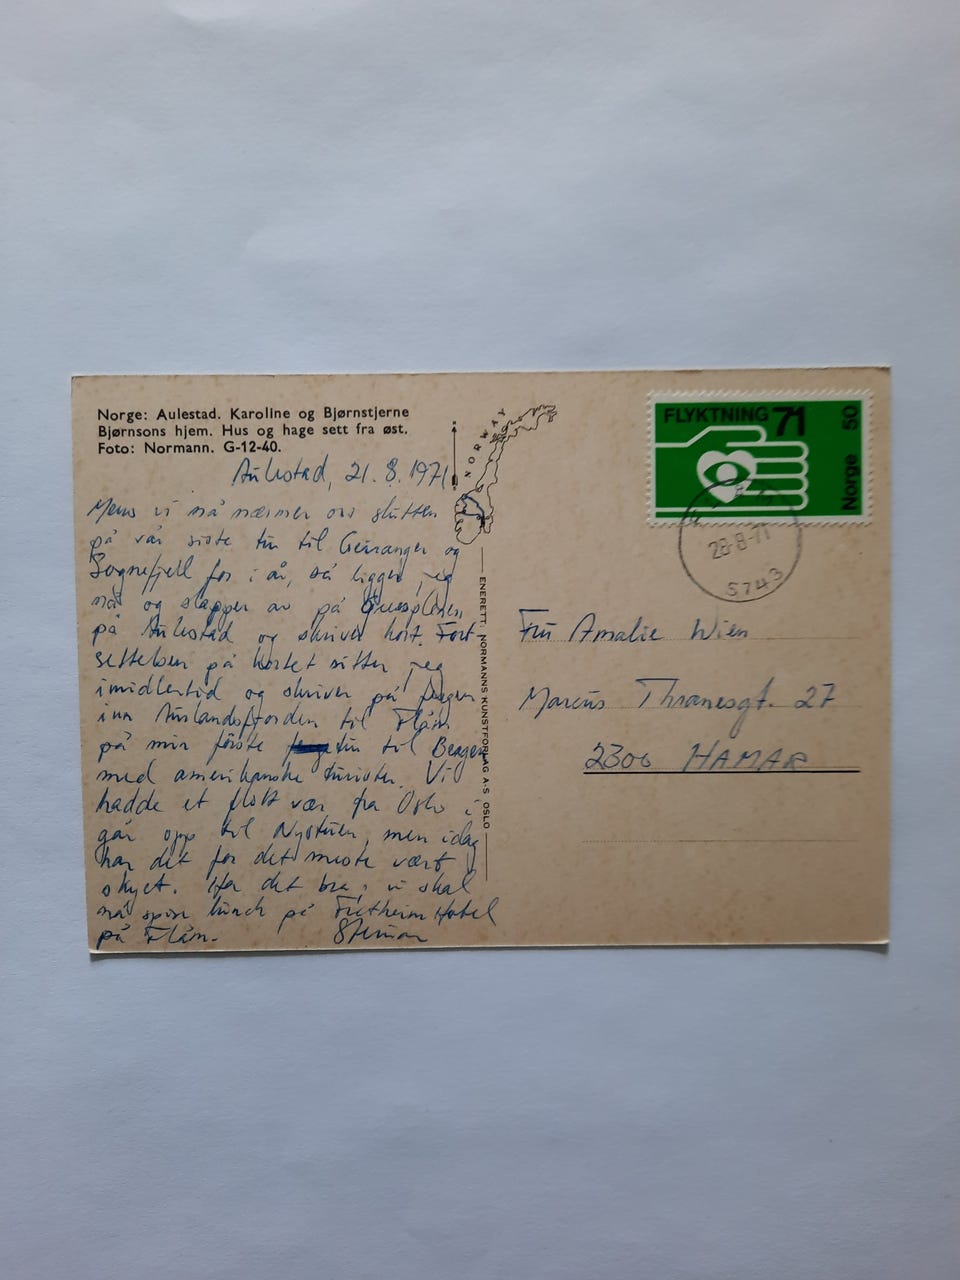 Norge: Aulestad. Karoline og Bjørnstjerne
Bjørnsons hjem. Hus og hage sett fra øst.
Foto: Normann. G-12-40.
NORWAY
FLYKTNING 71
Norge 50
28-8-71
5743
Aulestad, 21.8.1971
Mens vi nå nærmer oss slutten
på vår siste tur til Geiranger og
Sognefjell for i år, så ligger jeg
nå og slapper av på gressplenen
på Aulestad og skriver kort. Fort-
settelsen på kortet sitter jeg
imidlertid og skriver på fergen
inn Aurlandsfjorden til Flåm
på min første tur til Bergen
med amerikanske turister. Vi
hadde et flott vær fra Oslo i
går opp til Nystuen, men idag
har det for det meste vært
skyet. Ha det bra, vi skal
nå spise lunch på Fretheim Hotel
på Flåm.
Steinar
ENERETT: NORMANNS KUNSTFORLAG A-S OSLO
Fru Amalie Wien
Marcus Thranesgt. 27
2300 HAMAR